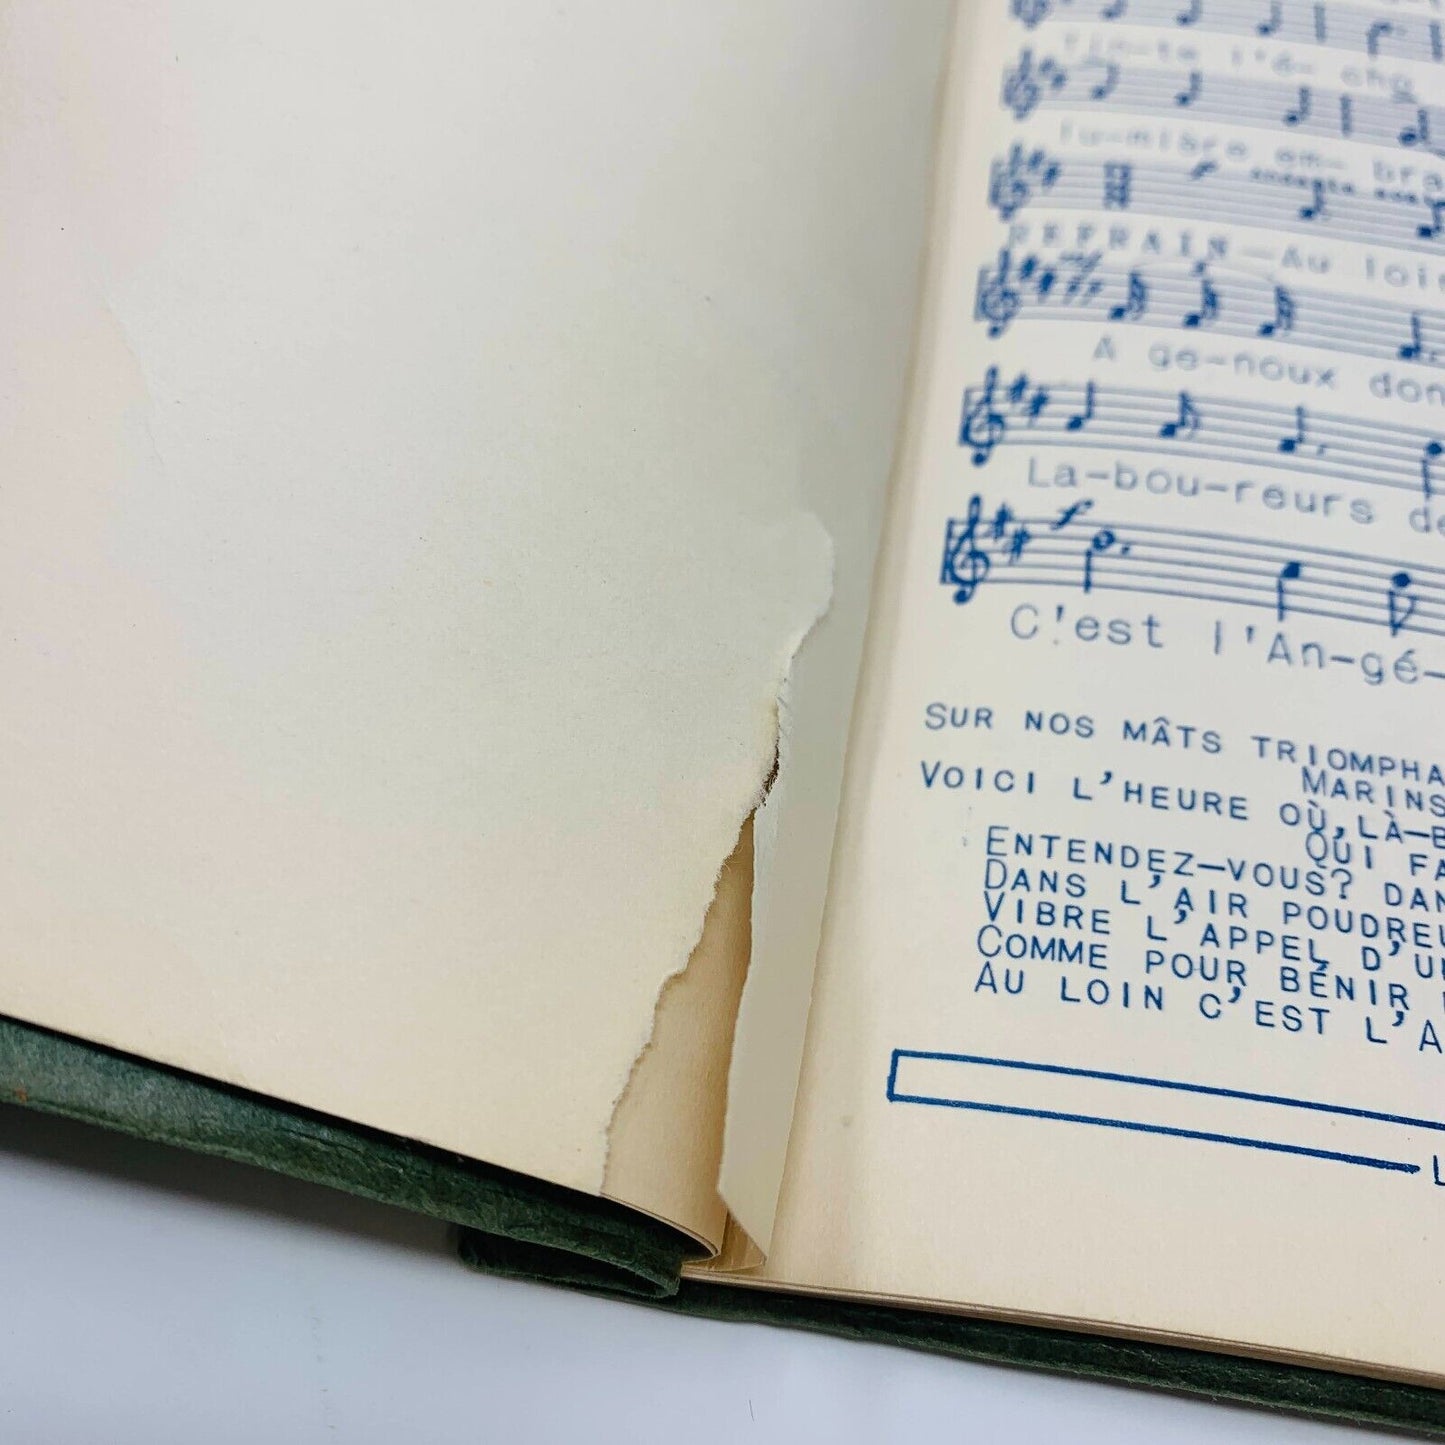 Tin-te l'é- cho
lu-mière em- bra
REFRAIN—Au loin
A ge-noux don
La-bou-reurs de
C'est l'An-gé-
SUR NOS MÂTS TRIOMPHA
MARINS
VOICI L'HEURE OÙ, LÀ-B
QUI FA
ENTENDEZ-VOUS? DAN
DANS L'AIR POUDREU
VIBRE L'APPEL D'UN
COMME POUR BÉNIR
AU LOIN C'EST L'A
L